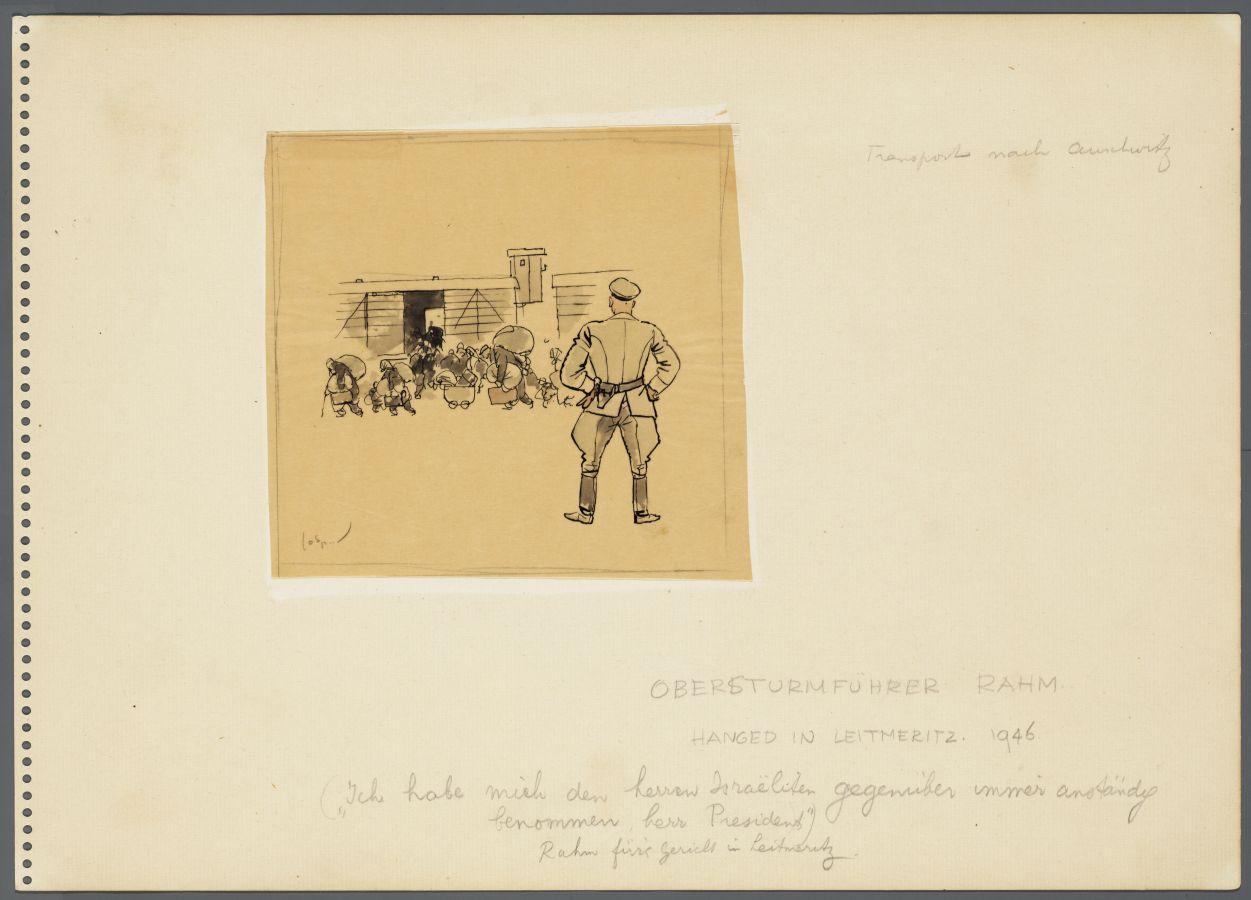 Transport nach Auschwitz
OBERSTURMFÜHRER RAHM
HANGED IN LEITMERITZ. 1946
("Ich habe mich den herren Israëliten gegenüber immer anständig
benommen, herr President")
Rahm für's Gericht in Leitmeritz.